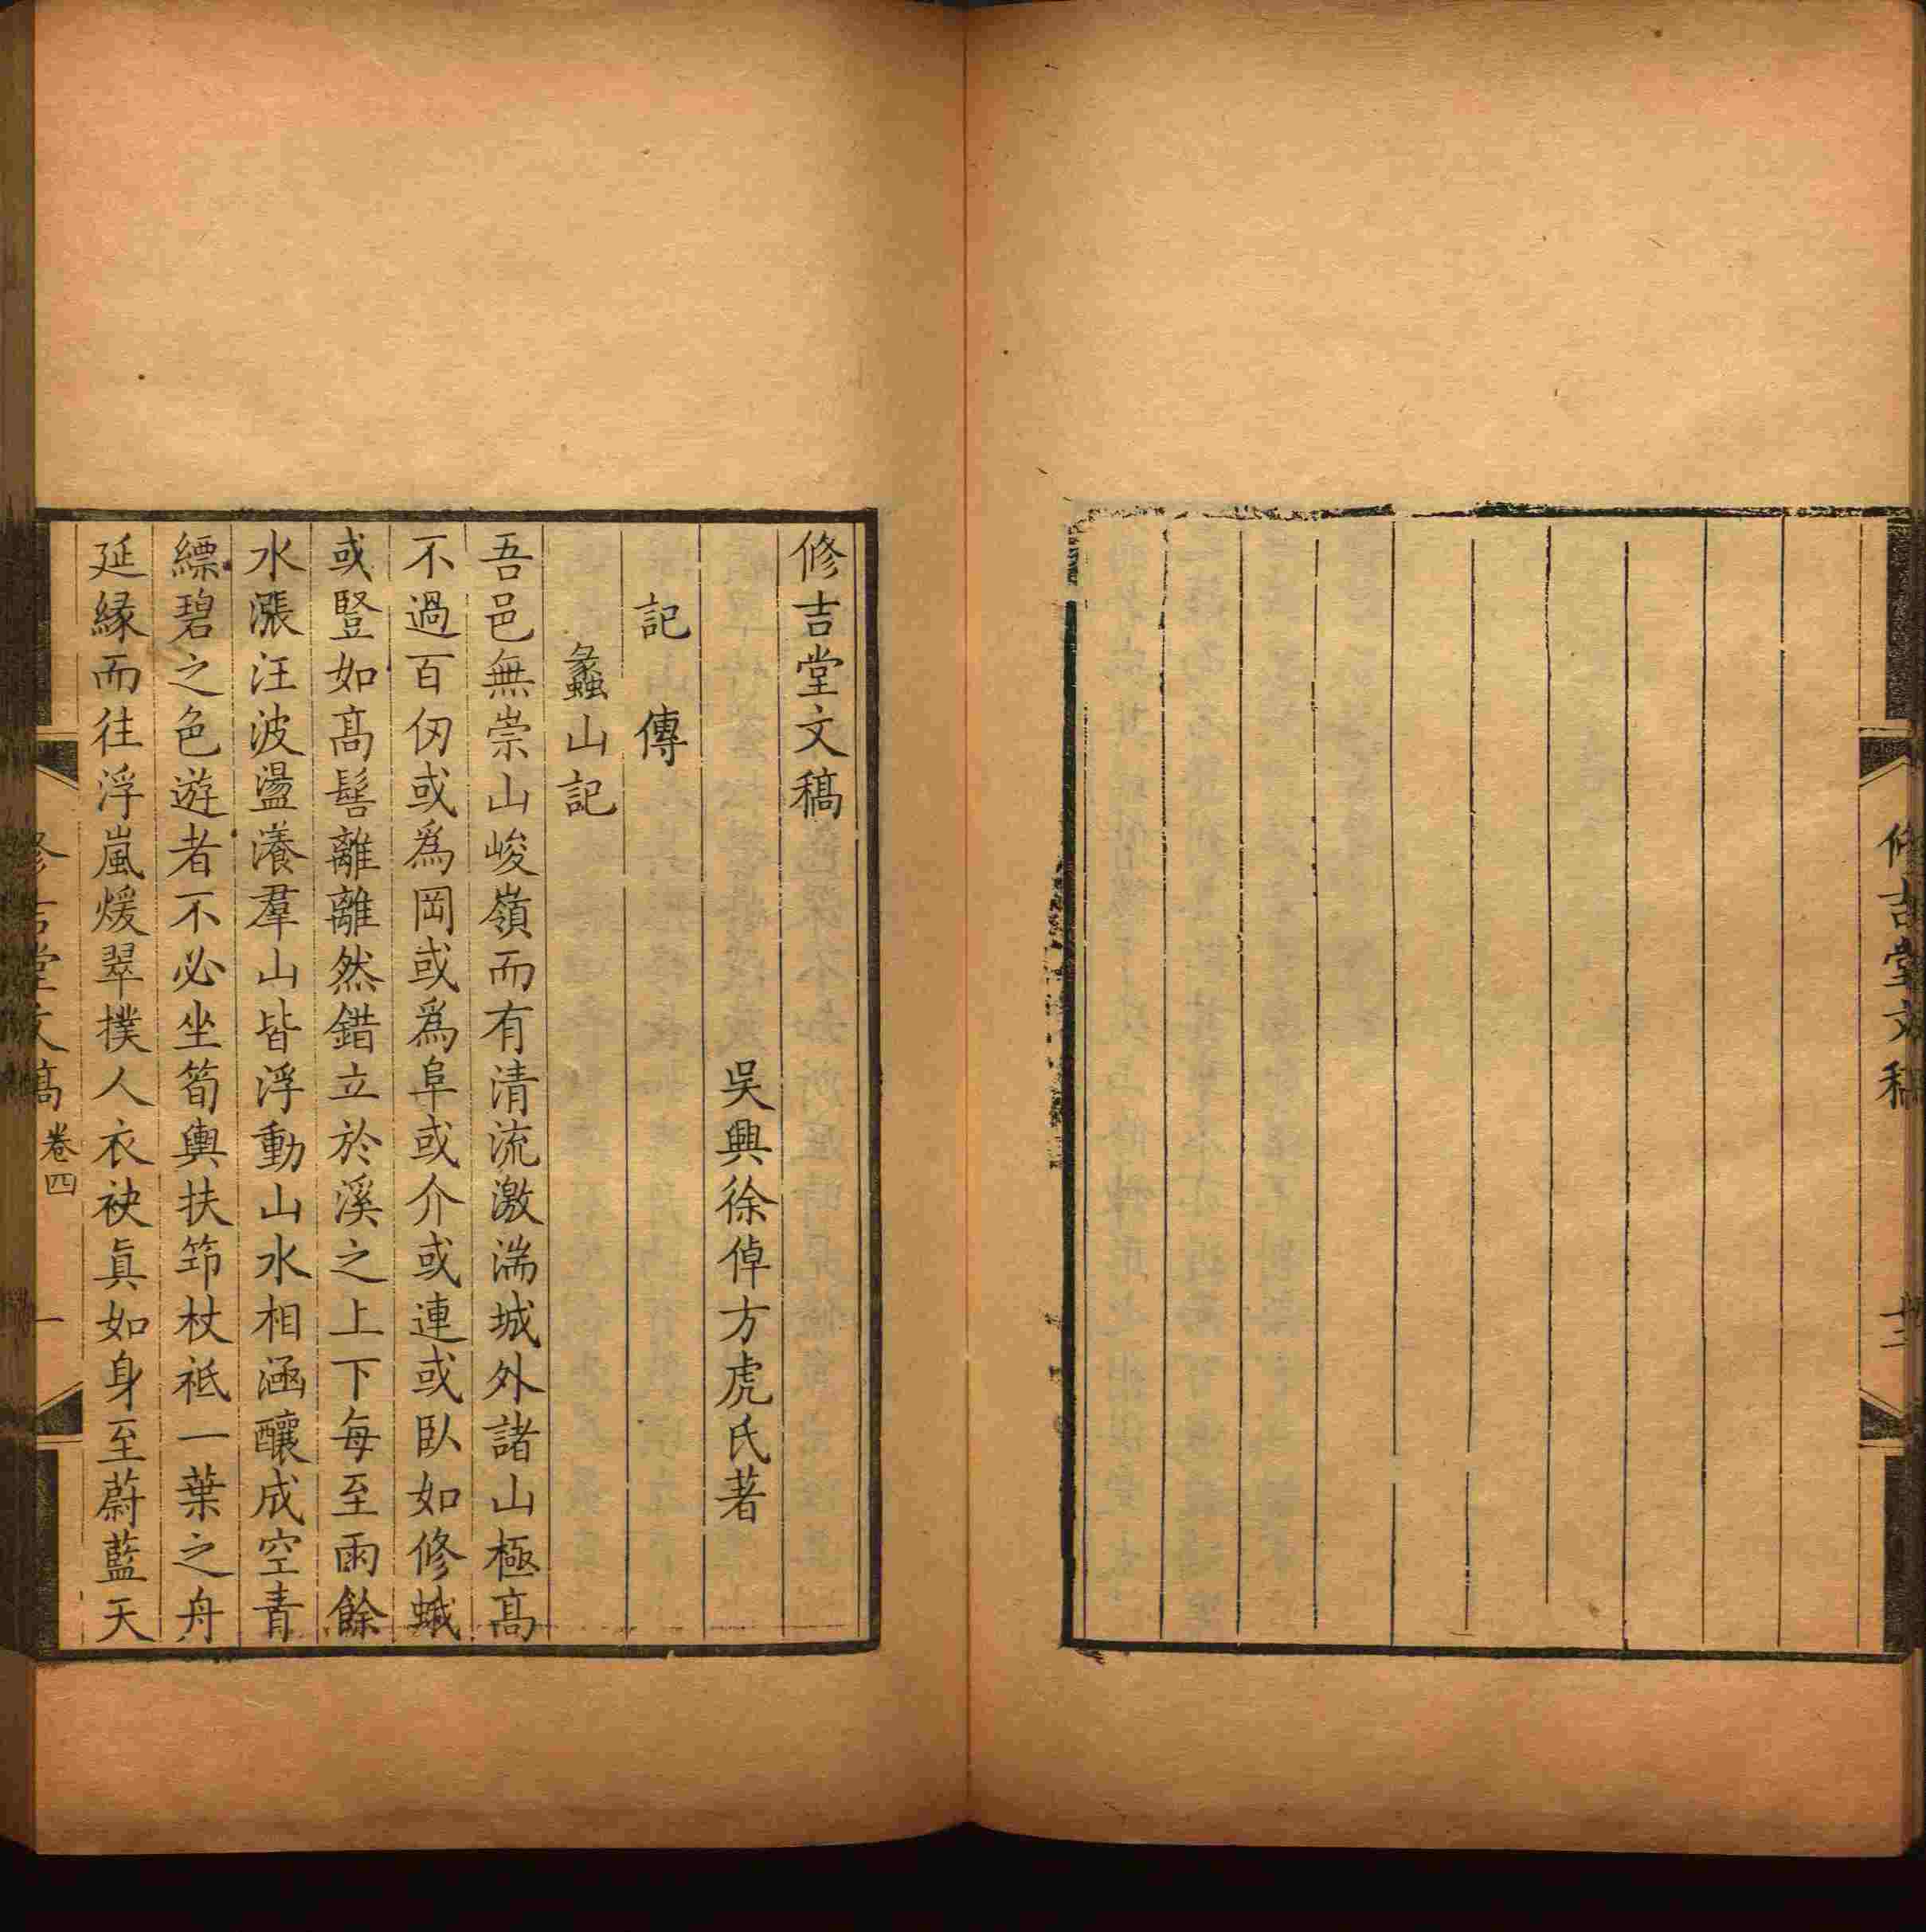 修吉堂文稿
廿二
修吉堂文稿
吳興徐倬方虎氏著
記傳
蠡山記
吾邑無崇山峻嶺而有清流激湍城外諸山極高
不過百仞或爲岡或爲阜或介或連或臥如修蛾
或豎如髙髻離離然錯立於溪之上下每至雨餘
水漲汪波盪瀁羣山皆浮動山水相涵釀成空青
縹碧之色遊者不必坐筍輿扶笻杖祗一葉之舟
延緣而往浮嵐煖翠撲人衣袂眞如身至蔚藍天
修吉堂文稿 卷四 一